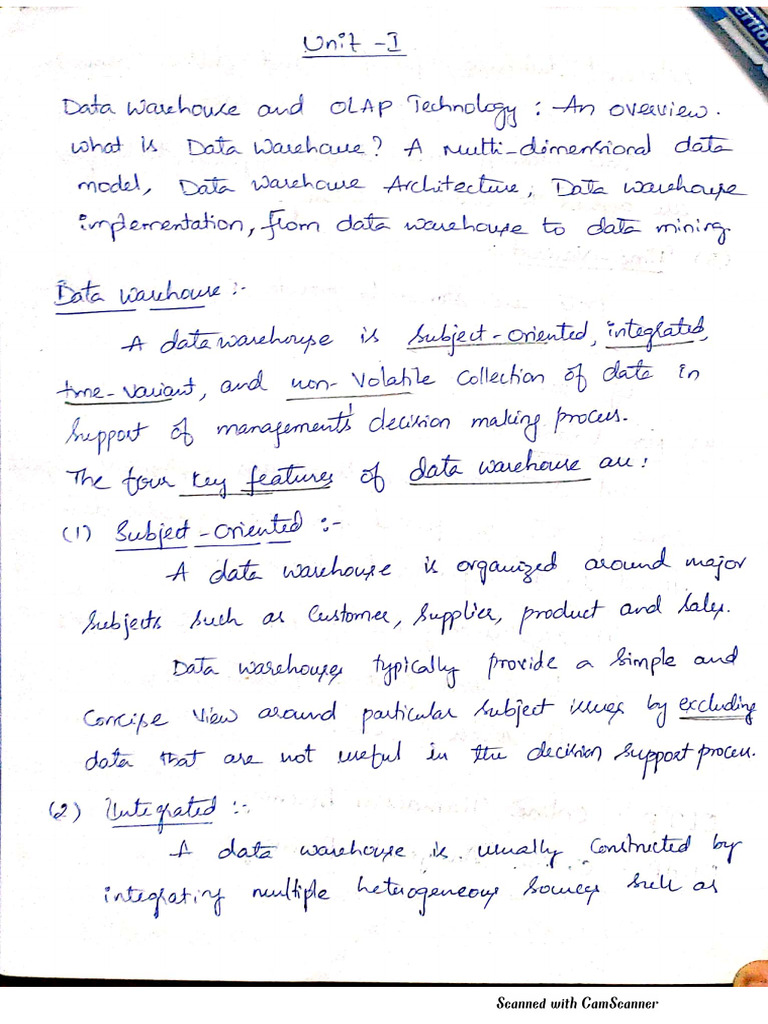 Unit - I
Data Warehouse and OLAP Technology : An overview.
What is Data Warehouse? A Multi-dimensional data
model, Data Warehouse Architecture, Data warehouse
implementation, from data warehouse to data mining.
Data warehouse :-
A data warehouse is subject-oriented, integrated,
time-variant, and non-volatile collection of data in
support of management's decision making process.
The four key features of data warehouse are:
(1) Subject-oriented :-
A data warehouse is organized around major
subjects such as customer, supplier, product and sales.
Data warehouses typically provide a simple and
concise view around particular subject issues by excluding
data that are not useful in the decision support process.
(2) Integrated :-
A data warehouse is usually constructed by
integrating multiple heterogeneous sources such as
Scanned with CamScanner